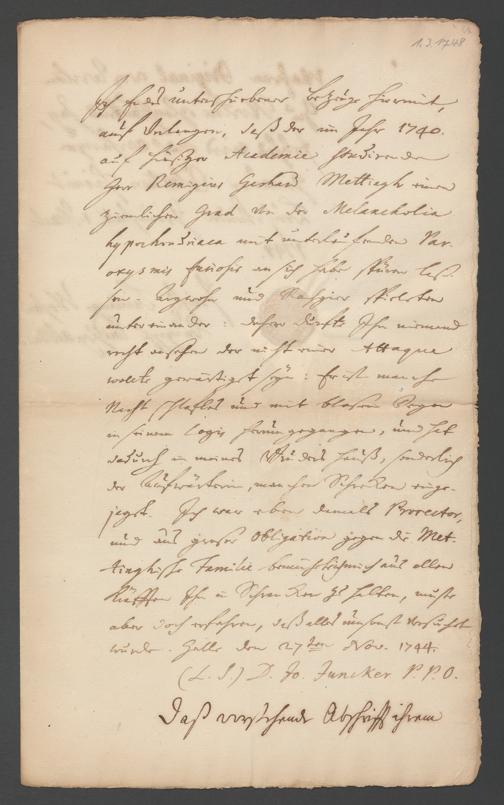 1.3.1748
Ich Endes unterschriebener bezeuge hiermit,
auf Verlangen, daß der im Jahr 1740.
auf hiesiger Academie studirende
Herr Remigius Gerhard Mettingh einen
ziemlichen Grad von der Melancholia
hypochondriaca mit unterlaufenden Par-
oxysmis furiosis an sich habe spüren laß-
sen. Argwohn und Jachzorn spieleten
unter einander: daher durfte Ihn niemand
recht ansehen der nicht einer Attaque
wolte gewärtiget seyn: Er ist manche
Nacht schlafloß und mit blosem Degen
in seinem Logis herum gegangen, und hat
dadurch in meines Bruders Hauß, sonderlich
der Aufwärterin, manchen Schrecken einge-
jagt. Ich war eben damals Prorector,
und aus großer Obligation gegen die Met-
tinghische Familie bemühete ich mich aus allen
Kräfften Ihn in Schrancken zu halten, muste
aber doch erfahren, daß alles umsonst versucht
wurde. Halle den 27ten Nov. 1744.
(L. S.) D. Jo. Juncker. P. P. O.
Daß vorstehende Abschrifft ihrem